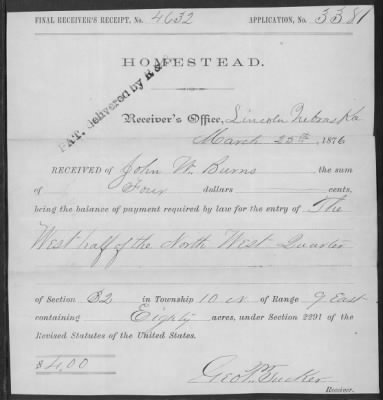 FINAL RECEIVER'S RECEIPT, No. 4632 APPLICATION, No. 3381
HOMESTEAD.
PAT. delivered by
Receiver's Office, Lincoln Nebraska
March 25th, 1876
RECEIVED of John W. Burns the sum
of Four dollars cents,
being the balance of payment required by law for the entry of The
West half of the North West Quarter
of Section 32 in Township 10 N of Range 9 East
containing Eighty acres, under Section 2291 of the
Revised Statutes of the United States.
$4.00
Geo P. Tucker
Receiver.